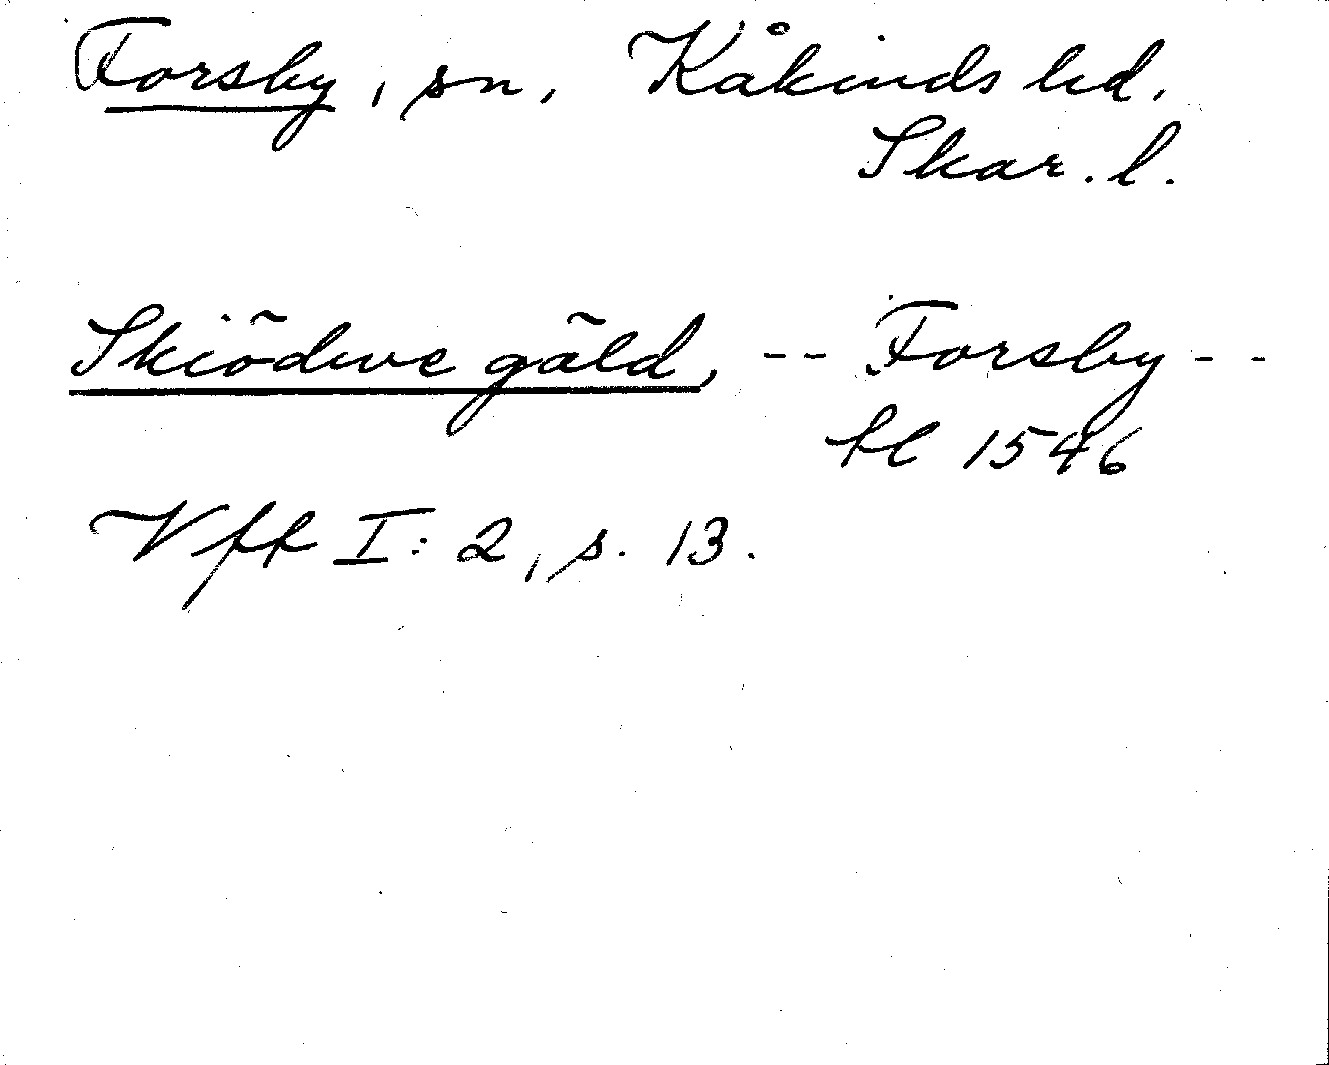 Forsby, sn, Kåkinds hd,
Skar. l.
Skiödwe gäld, -- Forsby --
fl 1546
Vff I: 2, s. 13.